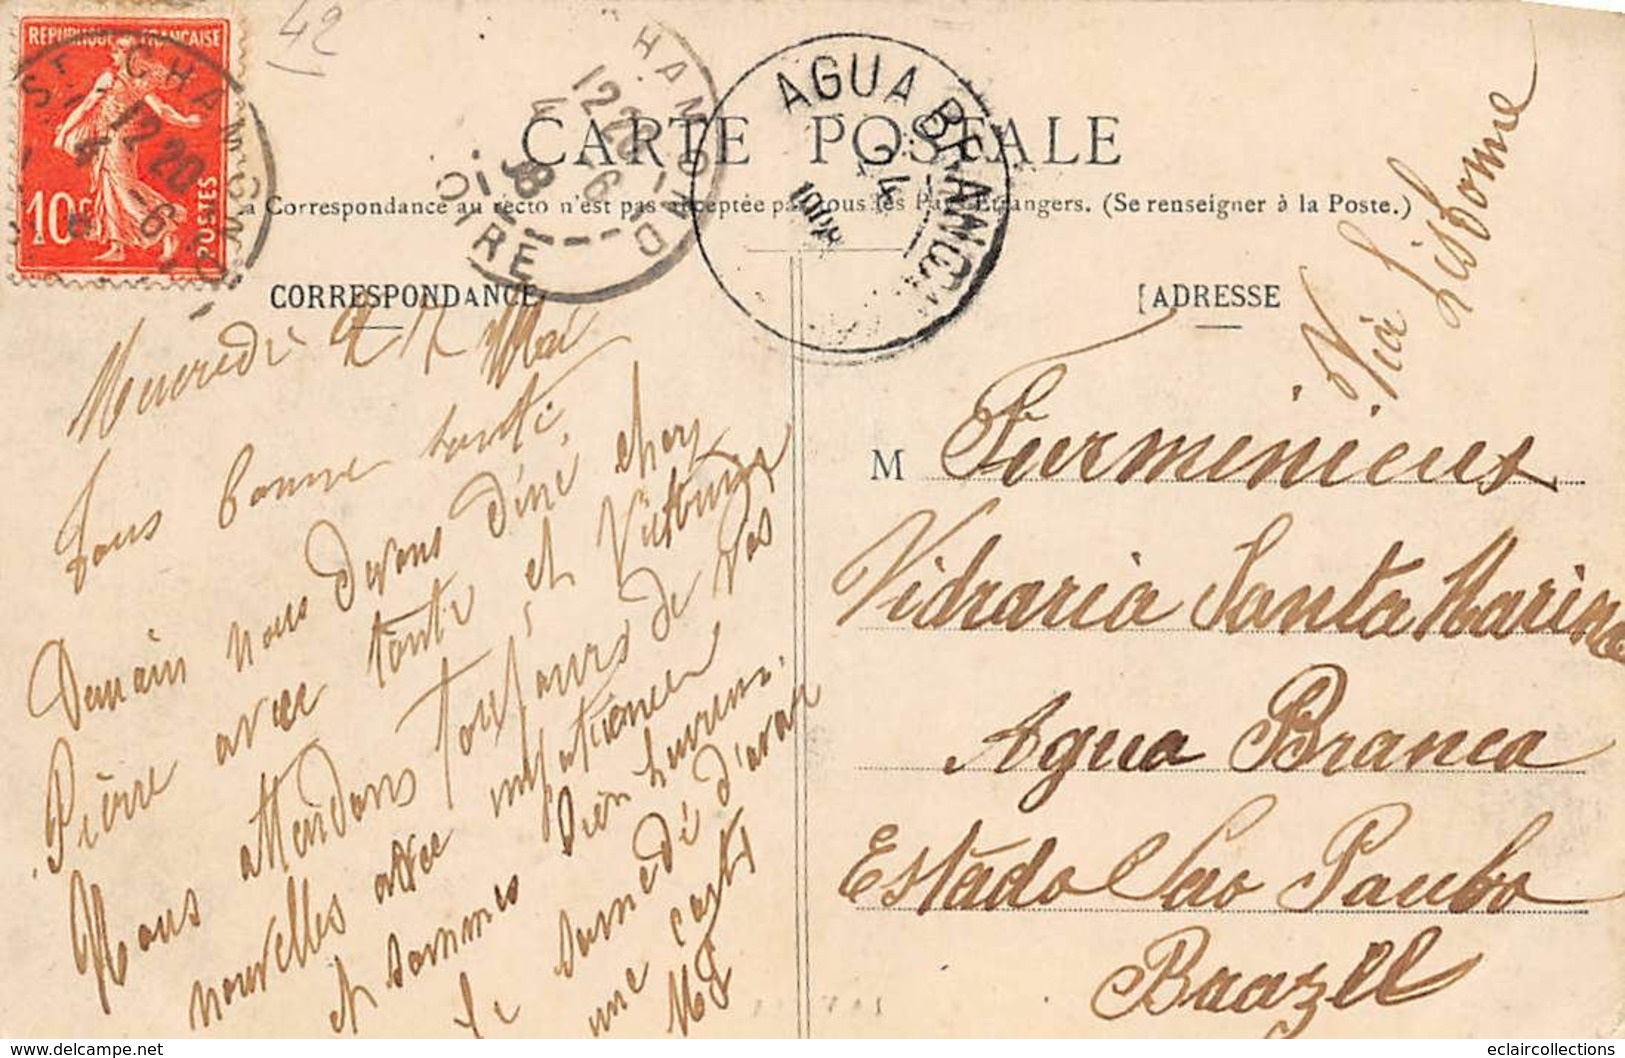 42
REPUBLIQUE FRANÇAISE
10c POSTES
ST CHAMOND
12 20
4 -6
CHAMOND
12 20
4 -6
08
LOIRE
AGUA BRANCA
24
CARTE POSTALE
La Correspondance au recto n'est pas acceptée par tous les Pays Etrangers. (Se renseigner à la Poste.)
CORRESPONDANCE
ADRESSE
Via Lisbonne
Mercredi 27 Mai
Tous bonne santé
Demain nous devons diné chez
Pierre avec tante et Victorine
Nous attendons toujours de vos
nouvelles avec impatience
et sommes bien heureux
le samedi d'avoir
une carte
M
Vidraria Santa Marina
Agua Branca
Estado Sao Paulo
Brazil
eclaircollections